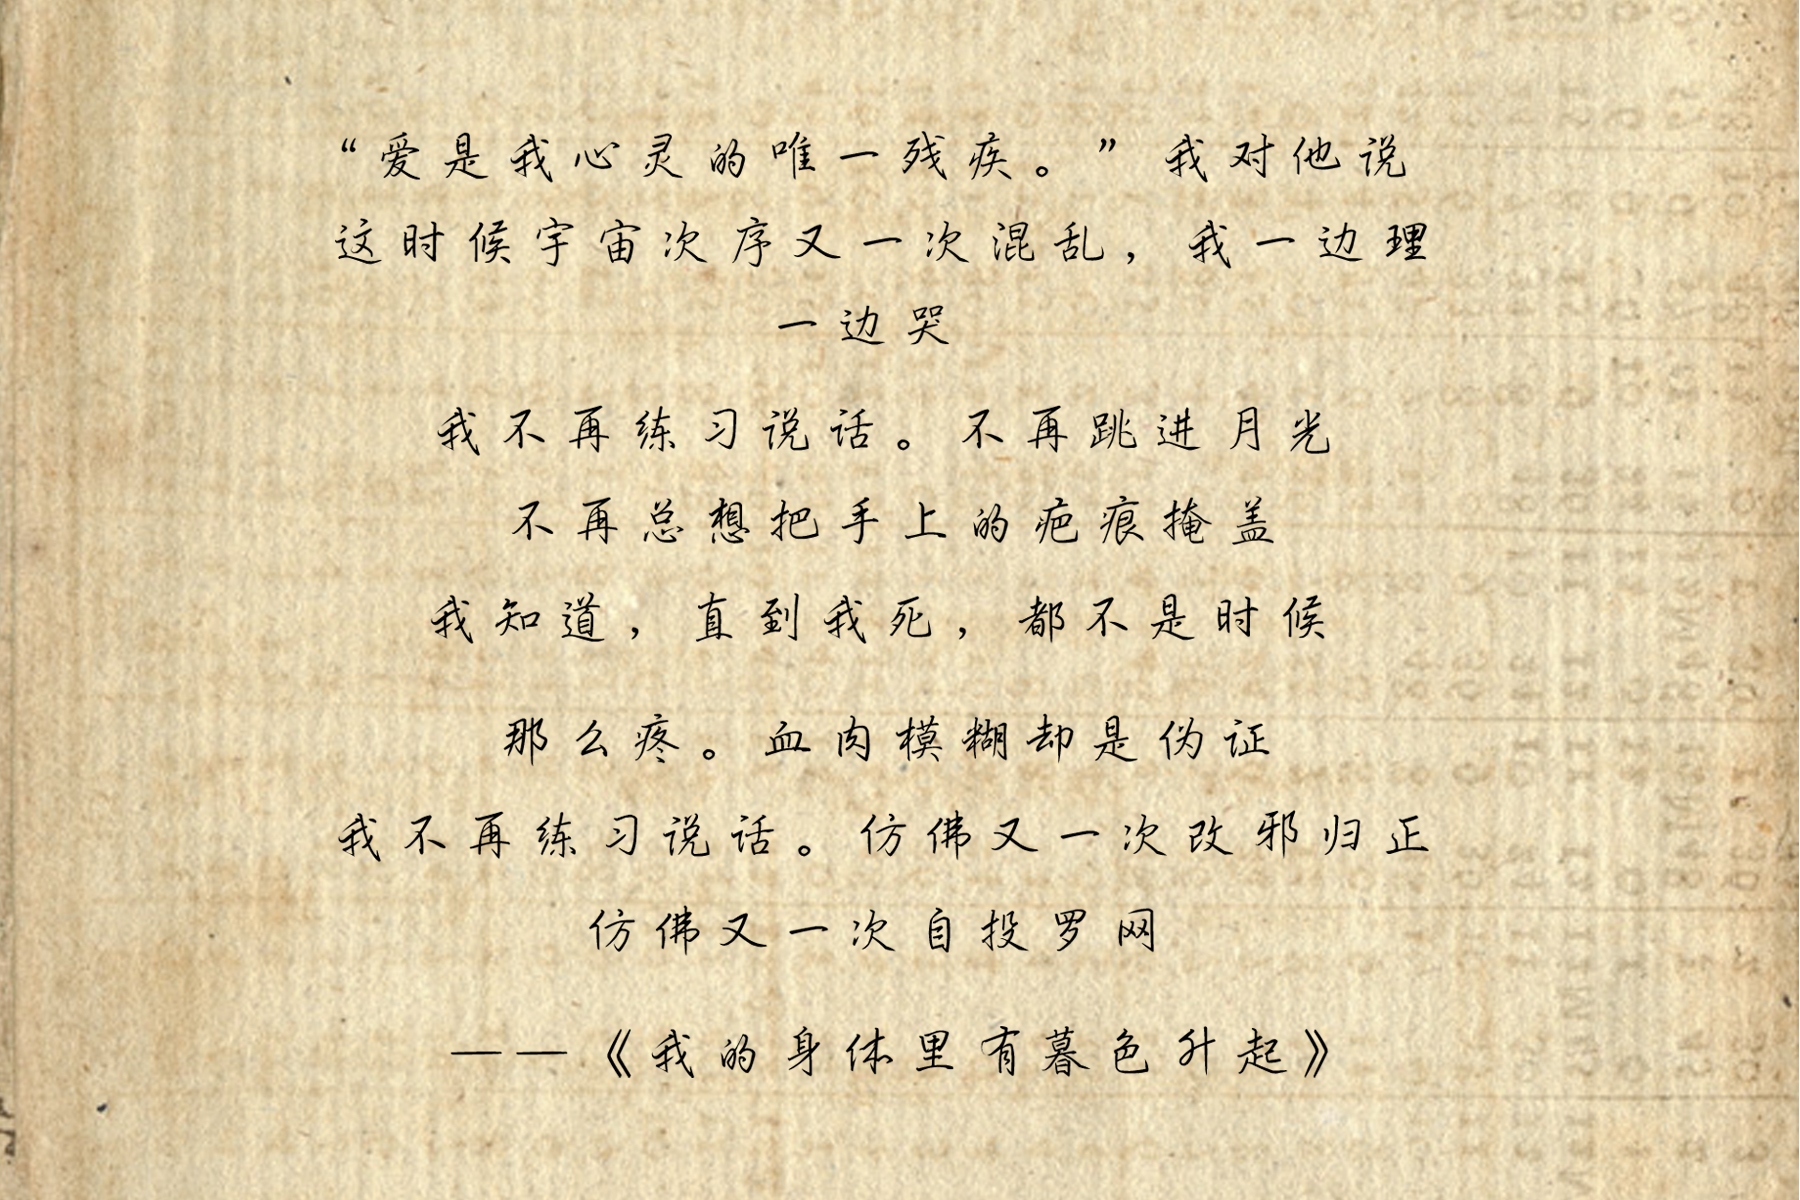 “爱是我心灵的唯一残疾。”我对他说
这时候宇宙次序又一次混乱，我一边理
一边哭
我不再练习说话。不再跳进月光
不再总想把手上的疤痕掩盖
我知道，直到我死，都不是时候
那么疼。血肉模糊却是伪证
我不再练习说话。仿佛又一次改邪归正
仿佛又一次自投罗网
——《我的身体里有暮色升起》